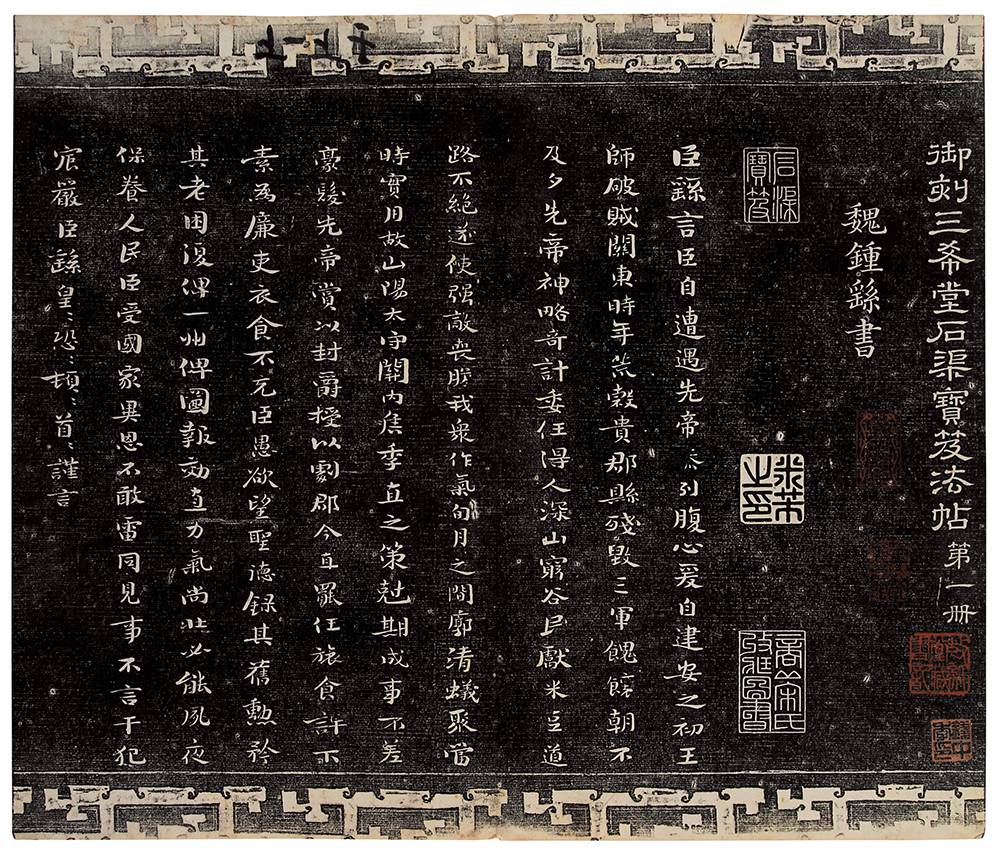 御刻三希堂石渠寶笈法帖 第一冊
魏鍾繇書
石渠寶笈
米芾之印
臣繇言臣自遭遇先帝忝列腹心爰自建安之初王
師破賊關東時年荒榖貴郡縣殘毀三軍餽饟朝不
及夕先帝神略奇計委任得人深山窮谷民獻米豆道
路不絕遂使强敵喪膽我衆作氣旬月之間廓清蟻聚當
時實用故山陽太守關內侯季直之策尅期成事不差
豪髮先帝賞以封爵授以劇郡今直罷任旅食許下
素爲廉吏衣食不充臣愚欲望聖德録其舊勳矜
其老困復俾一州俾圖報効直力氣尚壯必能夙夜
保養人民臣受國家異恩不敢雷同見事不言干犯
宸嚴臣繇皇〻恐〻頓〻首〻謹言